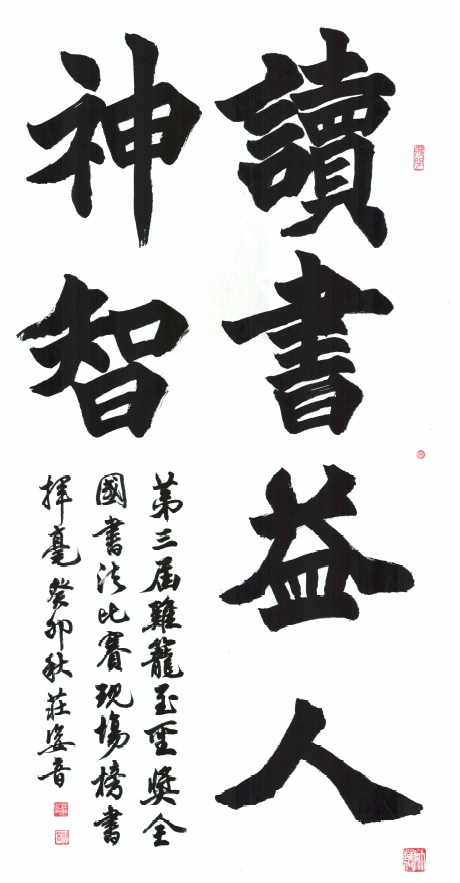 讀書益人
神智
第三屆雞籠至聖獎全
國書法比賽現場榜書
揮毫癸卯秋莊姿音